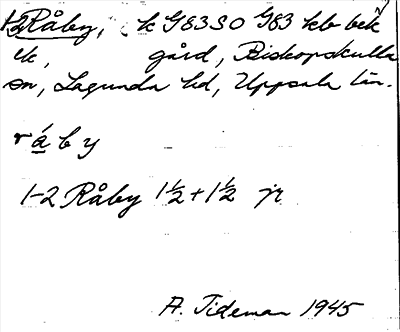 1-2 Råby, k G83SO G83 kb bek
lk, gård, Biskopskulla
sn, Lagunda hd, Uppsala län.
råby
1-2 Råby 1½+1½ jr
A. Tideman 1945